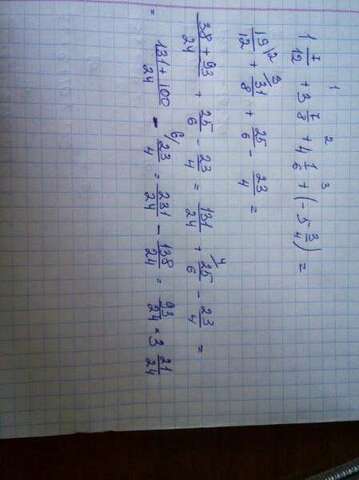 1 2 3
1 7/12 + 3 7/8 + 4 1/6 + (- 5 3/4) =
19/12 + 31/8 + 25/6 - 23/4 =
38 + 93/24 + 25/6 - 23/4 = 131/24 + 25/6 - 23/4 =
= 131 + 100/24 - 23/4 = 231/24 - 138/24 = 93/24 = 3 21/24